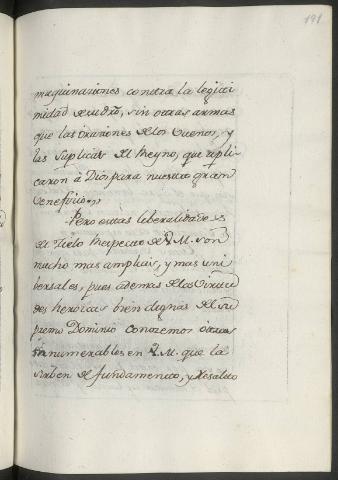 191
maquinaciones contra la legiti
midad de su dro, sin otras armas
que las oraciones de los buenos, y
las suplicas del Reyno, que apli
caron à Dios para nuestro gran
beneficio.
Pero estas liberalidades
del Cielo respecto de V. M. son
mucho mas amplias, y mas uni
bersales, pues ademas de las virtu
des heroicas bien dignas del su
premo Dominio conozemos otras
innumerables en V. M. que la
sirben de fundamento, y